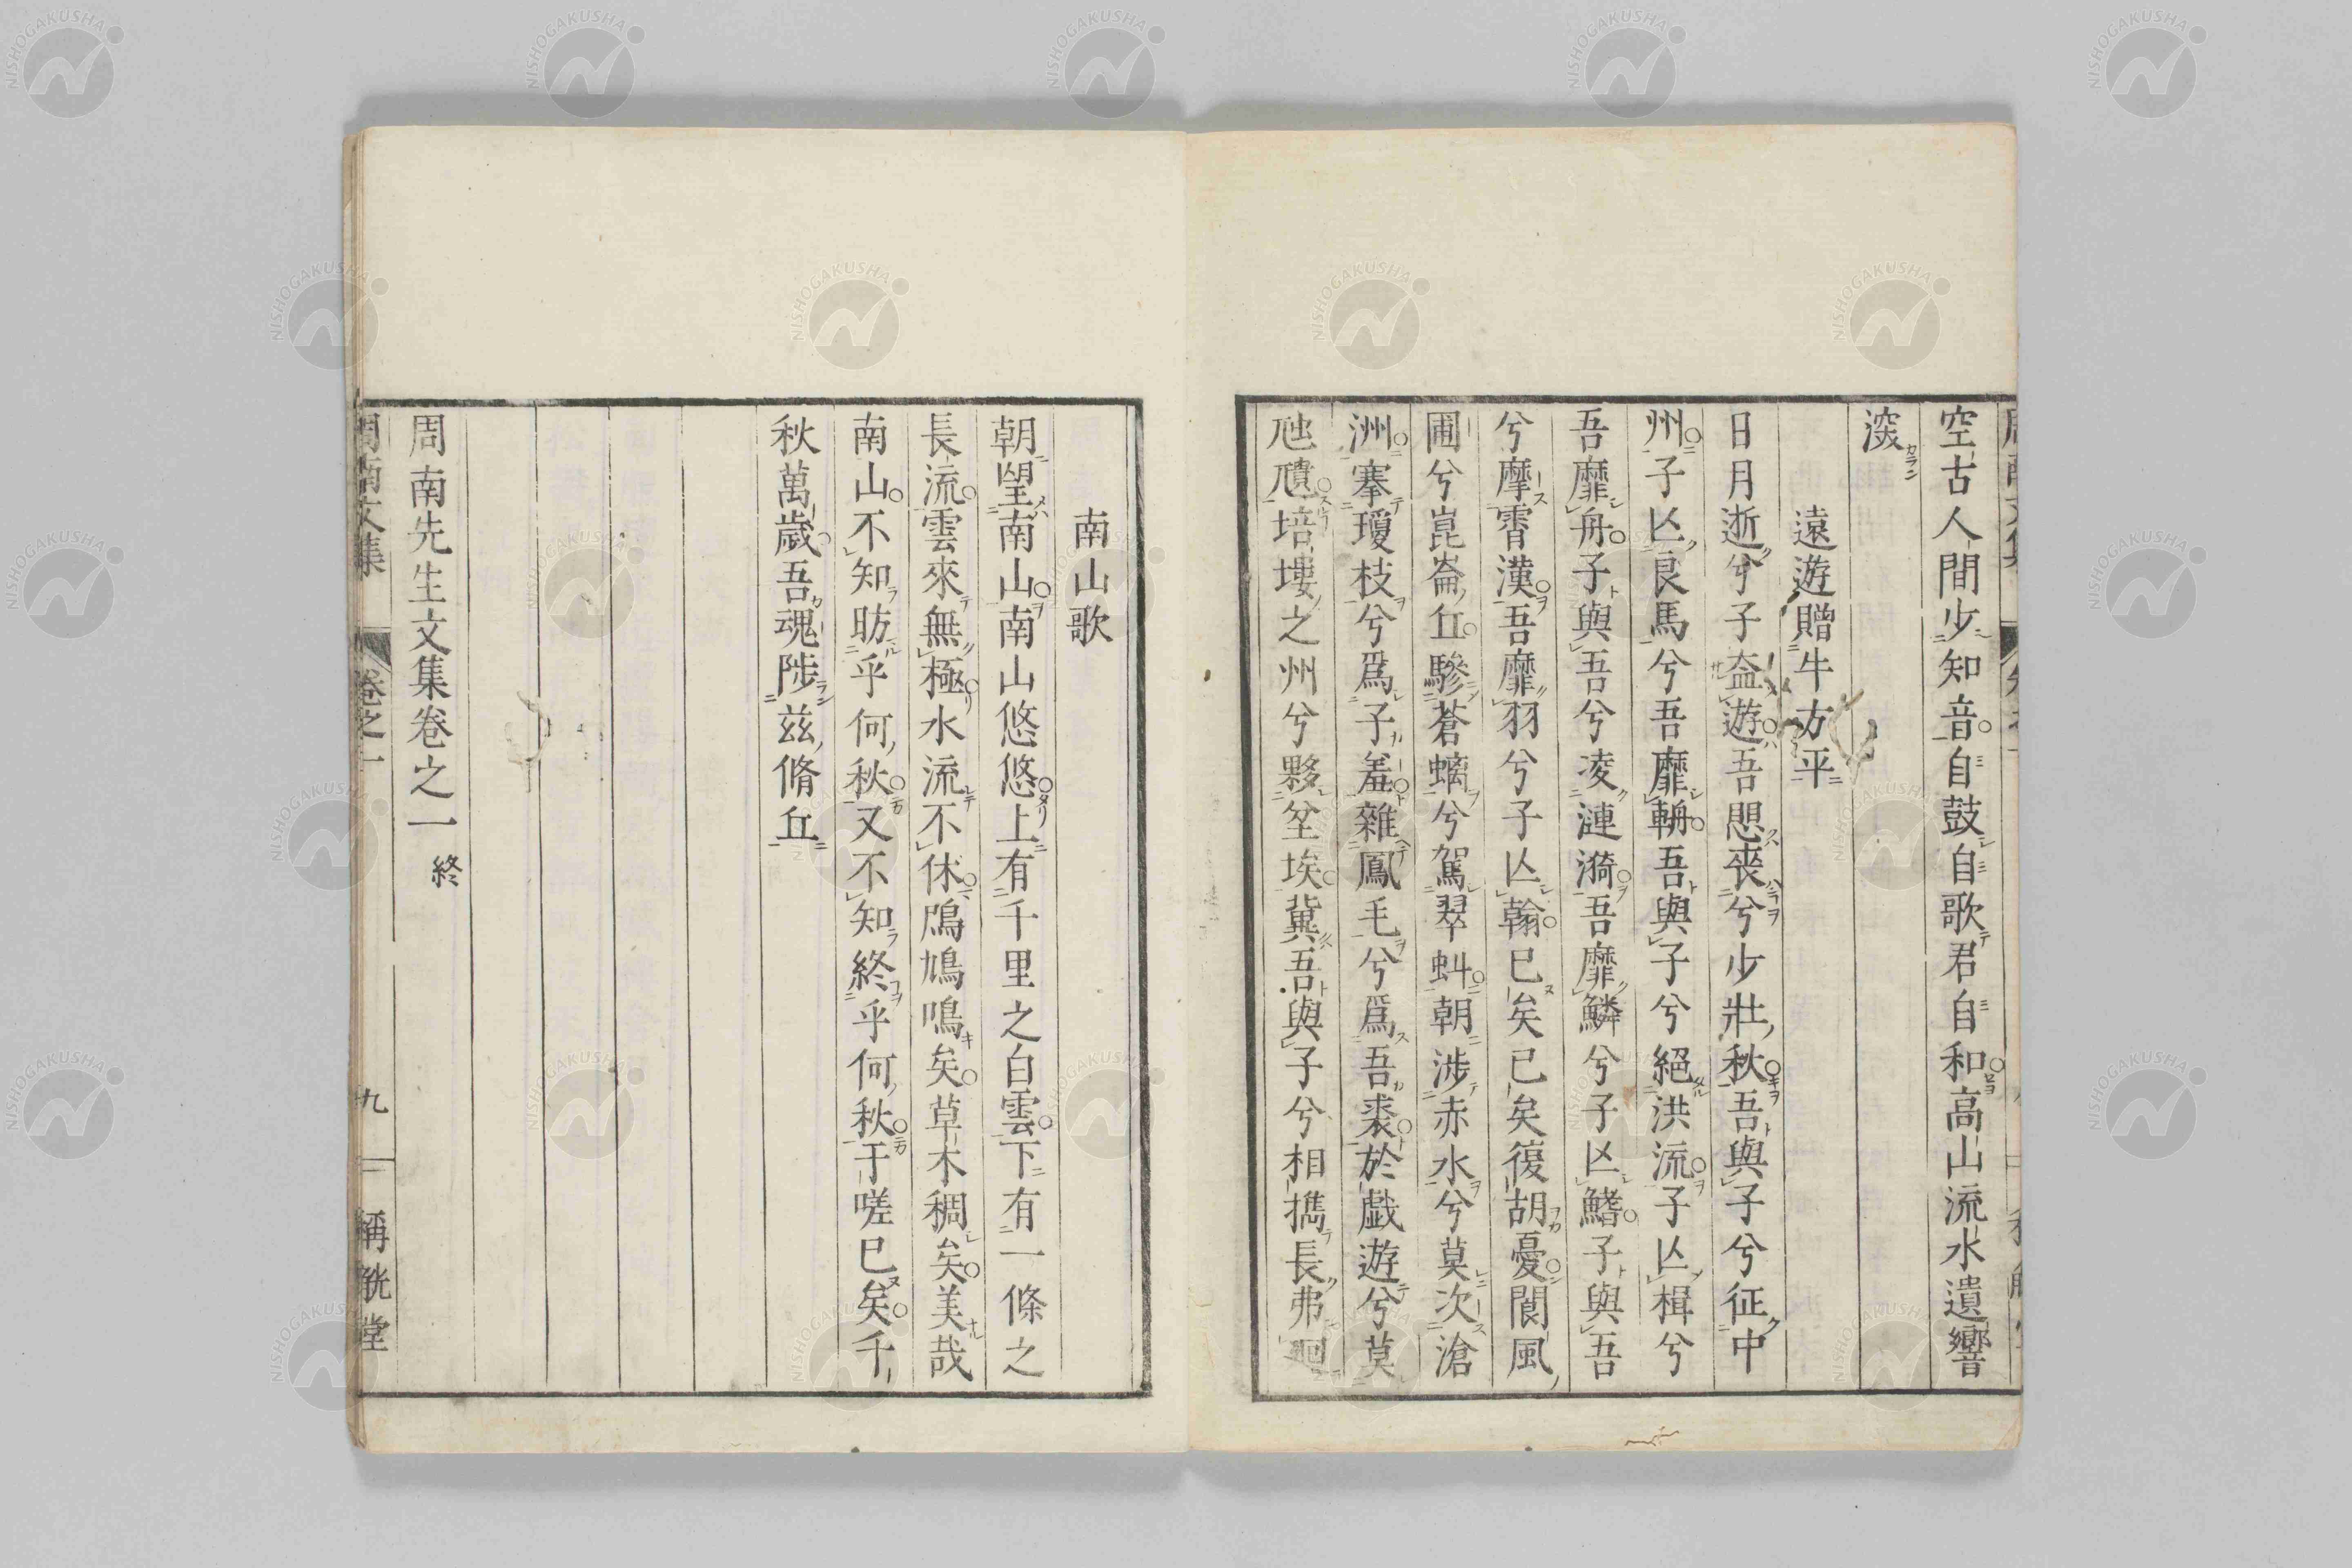 空古人間少知音自鼓自歌君自和高山流水遺響
滾
遠遊贈牛方平
日月逝兮子益遊吾愳喪兮少壯秋吾與子兮征中
州子亾良馬兮吾靡輈吾與子兮絕洪流子亾楫兮
吾靡舟子與吾兮凌漣漪吾靡鱗兮子亾鰭子與吾
兮摩霄漢吾靡羽兮子亾翰已矣已矣復胡憂閬風
圃兮崑崙丘驂蒼螭兮駕翠虯朝涉赤水兮莫次滄
洲搴瓊枝兮爲子羞雜鳳毛兮爲吾裘於戲遊兮莫
虺隤培塿之州兮夥坌埃冀吾與子兮相攜長弗迴
南山歌
朝望南山南山悠悠上有千里之白雲下有一條之
長流雲來無極水流不休鳲鳩鳴矣草木稠矣美哉
南山不知昉乎何秋又不知終乎何秋于嗟已矣千
秋萬歲吾魂陟兹脩丘
周南先生文集卷之一 終
周南文集 卷之一 九 稱觥堂
NISHOGAKUSHA